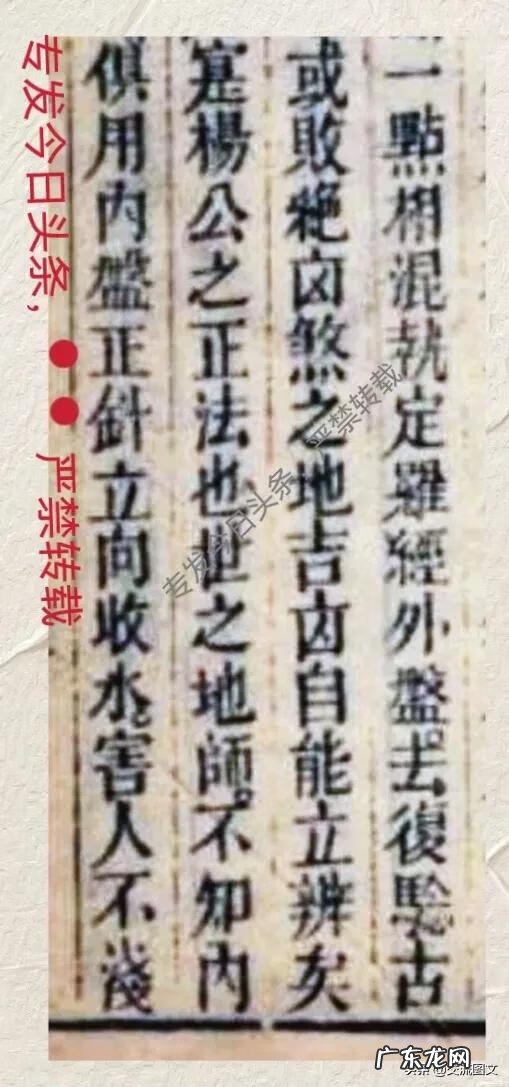 一點相混執定羅經外盤。去復驗古
或敗絶凶煞之地吉凶自能立辨矣
寔楊公之正法也世之地師。不知內
俱用內盤正針立向收水。害人不淺
专发今日头条,
严禁转载
专发今日头条
严禁转载
广东龙网